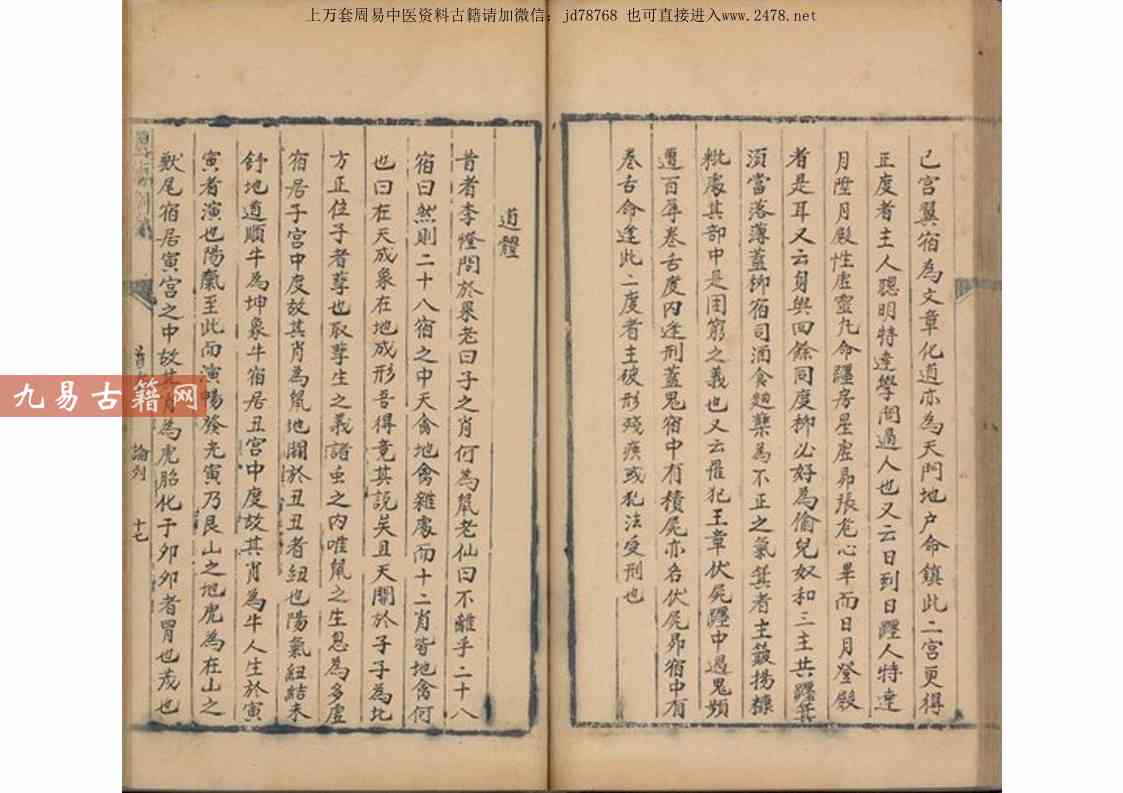 上万套周易中医资料古籍请加微信：jd78768 也可直接进入www.2478.net
已宫翼宿為文章化道亦為天門地户命鎮此二宫更得
正度者主人聰明特達學問過人也又云日到日躔人特達
月陞月殿性虛靈九命躔房星虛昴張危心畢而日月登殿
者是耳又云身與四餘同度柳必好為偷兒奴和三主共躔箕
湏當落薄蓋柳宿司酒食麯蘖為不正之氣箕者主簸揚糠
粃處其部中是困窮之義也又云罹犯王章伏屍躔中遇鬼頻
遭百辱卷舌度内逢刑蓋鬼宿中有積屍亦名伏屍昴宿中有
卷舌命逢此二度者主破形殘疾或犯法受刑也
道體
昔者李憕問於果老曰子之肖何為鼠老仙曰不離乎二十八
宿曰然則二十八宿之中天禽地禽雜處而十二肖皆地禽何
也曰在天成象在地成形吾得竟其說矣且天開於子子為北
方正位子者孳也取孳生之義諸虫之内唯鼠之生息為多虛
宿居子宫中度故其肖為鼠地闢於丑丑者紐也陽氣紐結未
舒地道順牛為坤象牛宿居丑宫中度故其肖為牛人生於寅
寅者演也陽氣至此而演暢發光寅乃艮山之地虎為在山之
獸尾宿居寅宫之中故其肖為虎胎化于卯卯者冒也茂也
論列
十七
九易古籍网